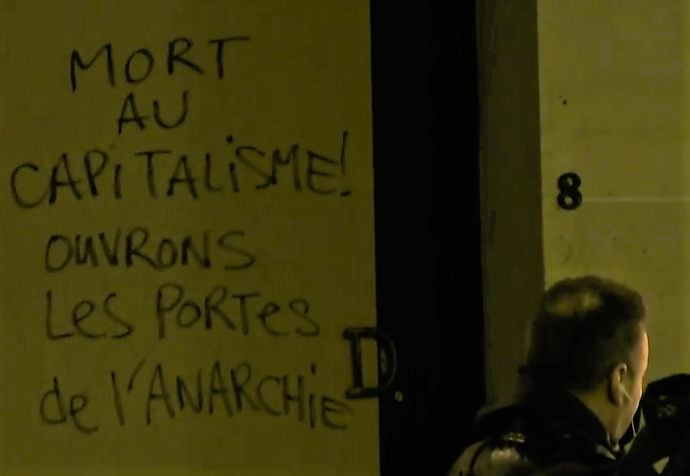 MORT
AU
CAPiTALiSME!
OUVRONS
LeS PORTes
de l'ANARCHiE
D.
8